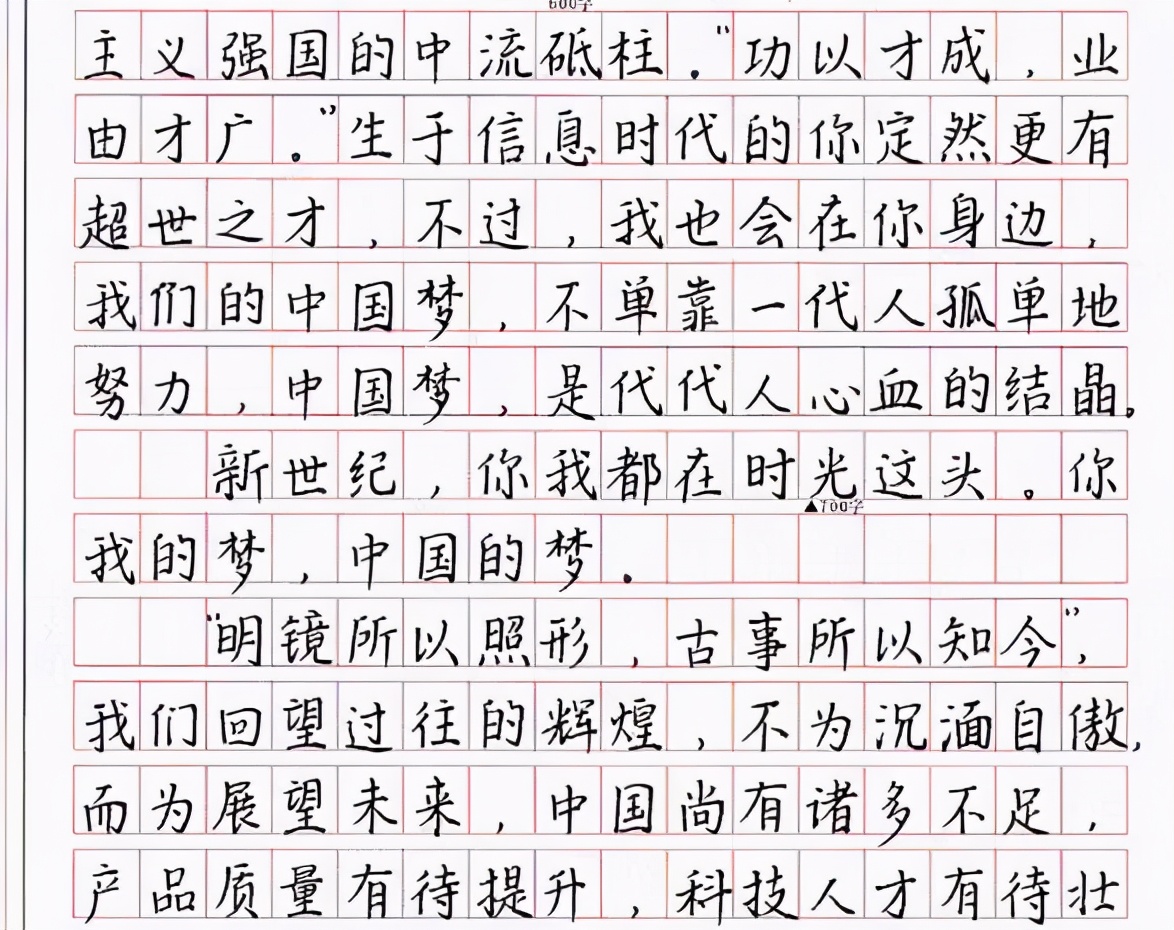 600字
主义强国的中流砥柱."功以才成，业
由才广。"生于信息时代的你定然更有
超世之才，不过，我也会在你身边，
我们的中国梦，不单靠一代人孤单地
努力，中国梦，是代代人心血的结晶。
新世纪，你我都在时光这头。你
▲700字
我的梦，中国的梦.
"明镜所以照形，古事所以知今",
我们回望过往的辉煌，不为沉湎自傲,
而为展望未来，中国尚有诸多不足，
产品质量有待提升，科技人才有待壮